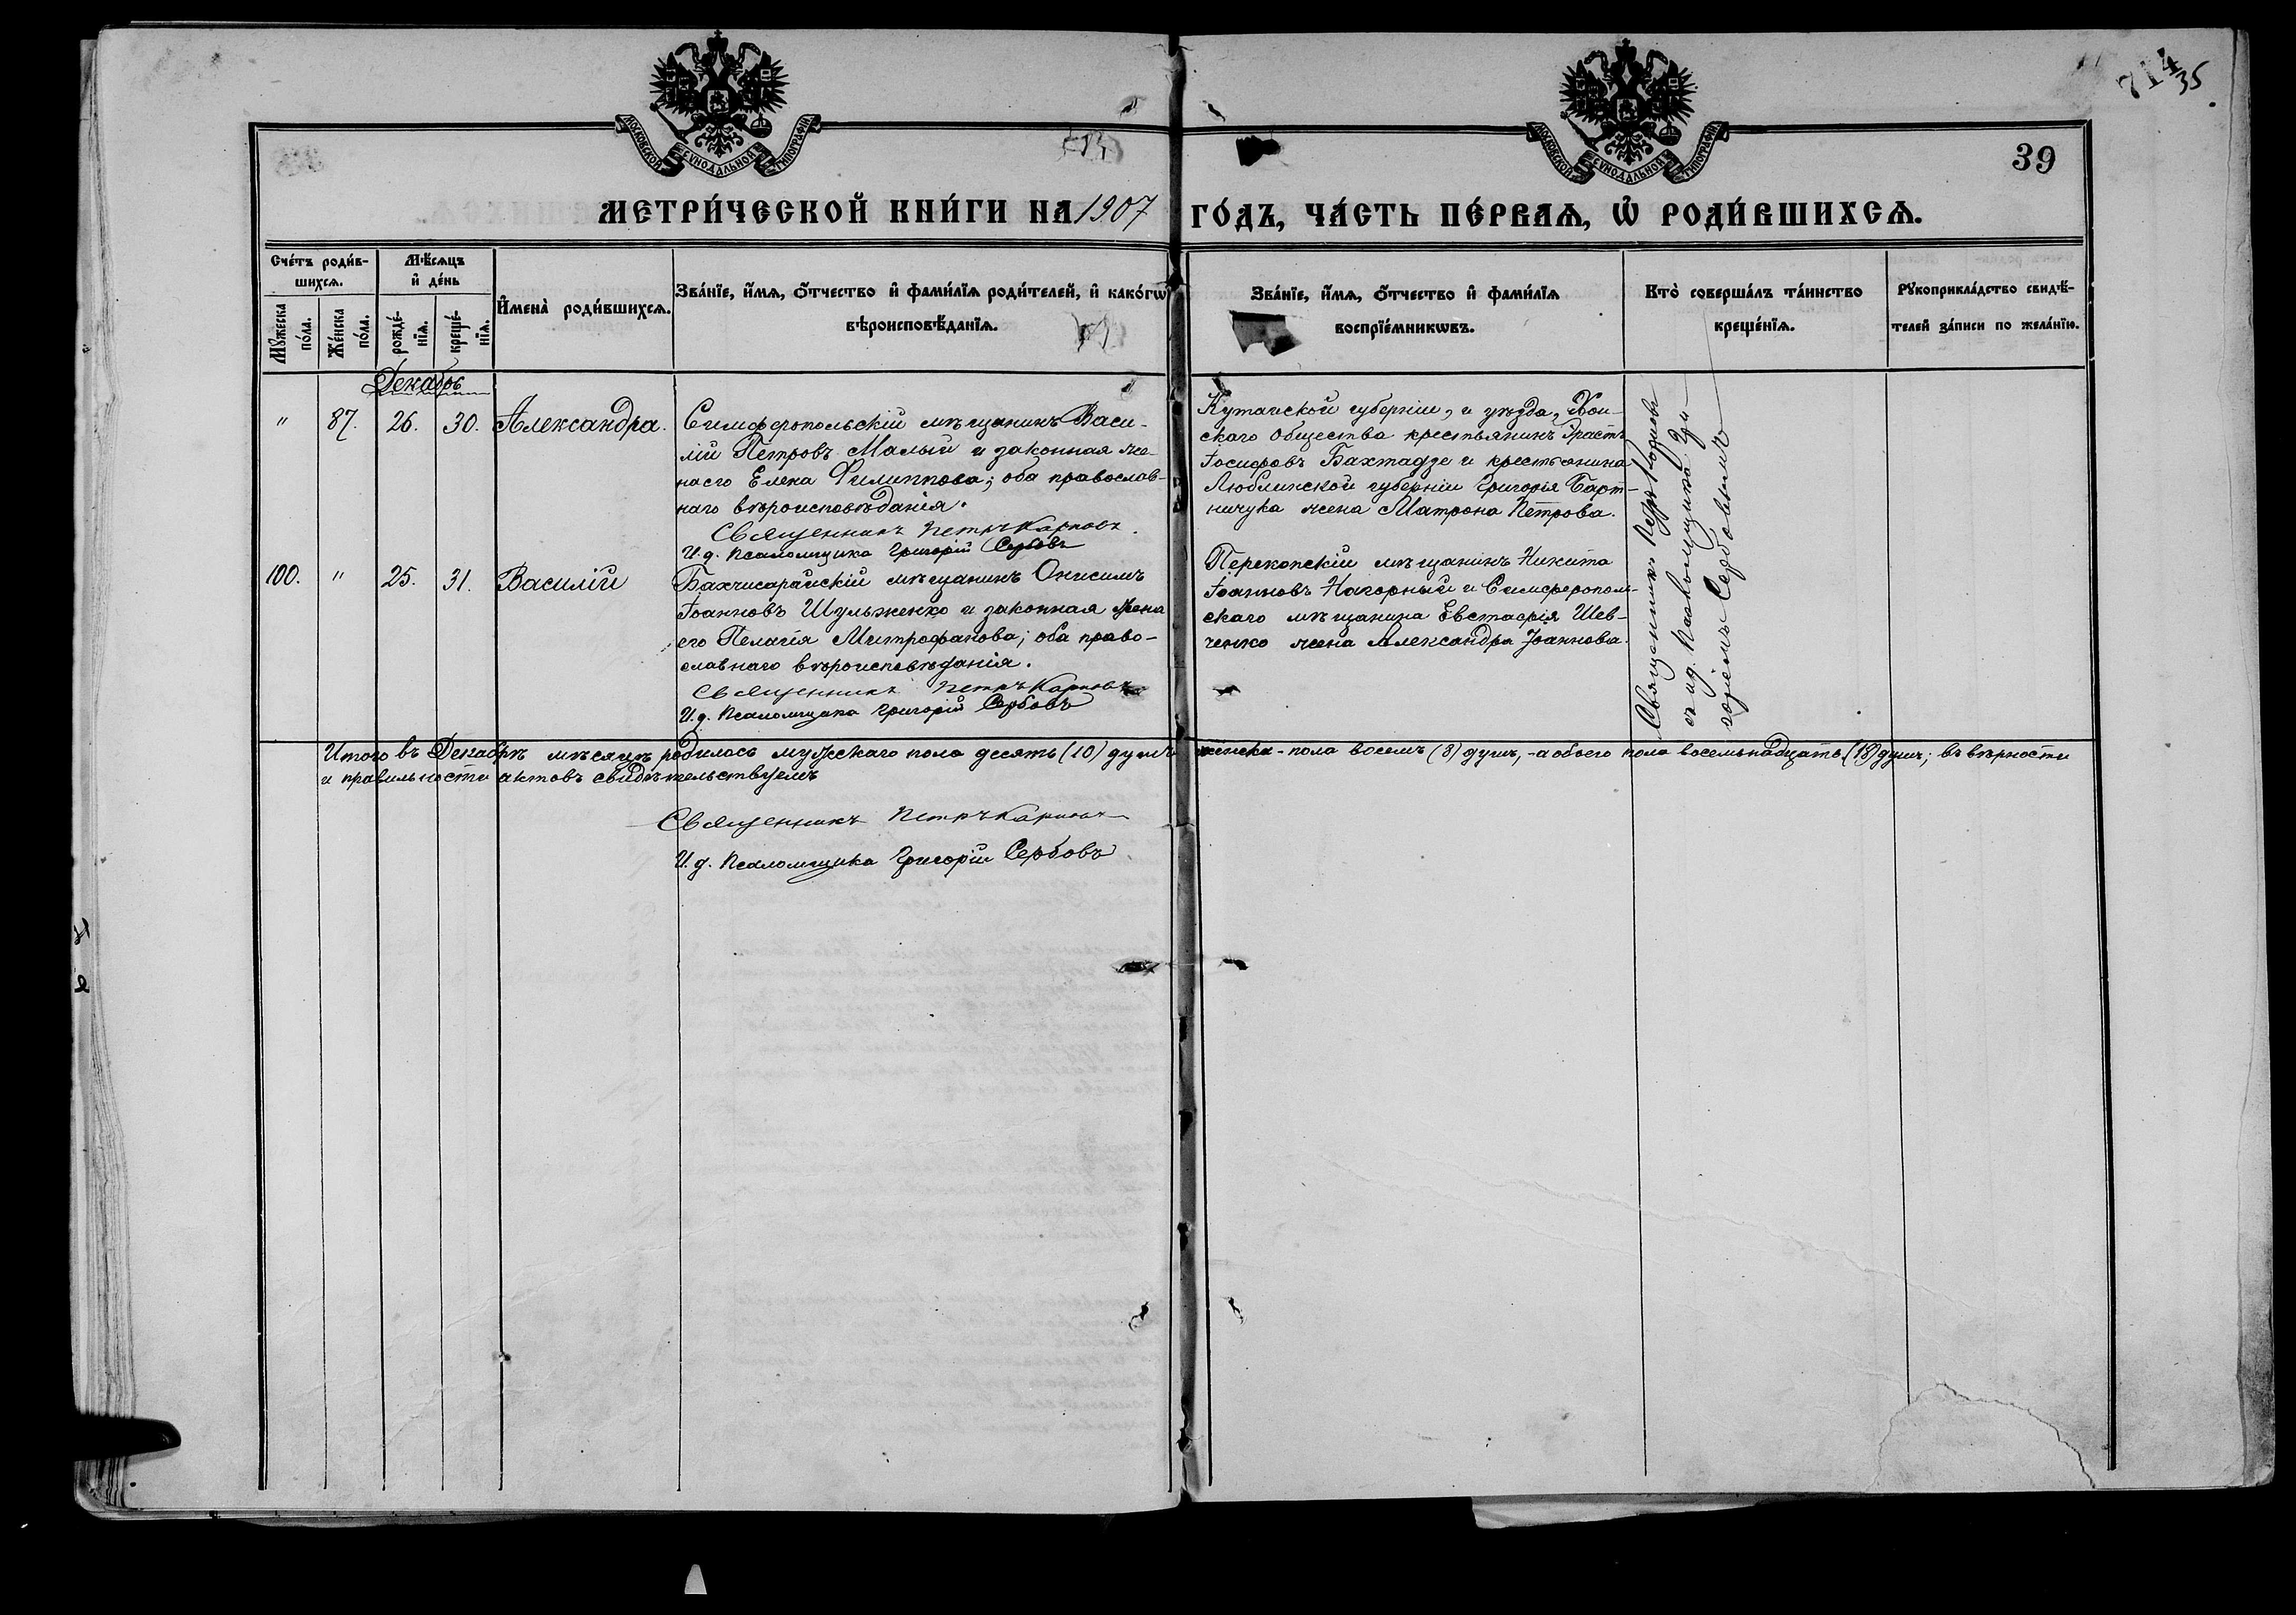 714/35
39
МОСКОВСКОЙ СѴНОДАЛЬНОЙ ТИПОГРАФІИ
МОСКОВСКОЙ СѴНОДАЛЬНОЙ ТИПОГРАФІИ
МЕТРИ́ЧЕСКОЙ КНИ́ГИ НА 1907 ГО́ДЪ, ЧА́СТЬ ПЕ́РВАѦ, Ѡ҆ РОДИ́ВШИХСѦ.
Сче́тъ роди́в-
шихсѧ.
Мꙋжеска по́ла.
Же́нска по́ла.
Мѣ́сѧцъ
и҆ де́нь
рожде́-
нїѧ.
креще́-
нїѧ.
И҆мена̀ роди́вшихсѧ.
Зва́нїе, и҆́мѧ, ѻ҆́тчество и҆ фами́лїѧ роди́телей, и҆ како́гѡ
вѣроисповѣ́данїѧ.
Зва́нїе, и҆́мѧ, ѻ҆́тчество и҆ фами́лїѧ
воспрїе́мникѡвъ.
Кто̀ соверша́лъ та́инство
креще́нїѧ.
Рꙋкоприкла́дство свидѣ́-
телей за́писи по жела́нїю.
Декабрь
" 87. 26. 30. Александра.
Симферопольскій мѣщанинъ Васи-
лій Петровъ Малый и законная же-
на его Елена Филиппова; оба православ-
наго вѣроисповѣданія.
Священникъ Петръ Карповъ
И.д. Псаломщика Григорій Сербовъ
Кутаиской губерніи, и уѣзда, Хон-
скаго общества крестьянинъ Эрастъ
Іосифовъ Бахтадзе и крестьянина
Люблинской губерніи Григорія Барт-
ничука жена Матрона Петрова.
Священникъ Петръ Карповъ
съ и.д. Псаломщика Гри-
горіемъ Сербовымъ
100. " 25. 31. Василій
Бахчисарайскій мѣщанинъ Онисимъ
Іоанновъ Шульженко и законная жена
его Пелагія Митрофанова; оба право-
славнаго вѣроисповѣданія.
Священникъ Петръ Карповъ
И.д. Псаломщика Григорій Сербовъ
Перекопскій мѣщанинъ Никита
Іоанновъ Нагорный и Симферополь-
скаго мѣщанина Евстафія Шев-
ченко жена Александра Іоаннова.
Итого въ Декабрѣ мѣсяцѣ родилось мужскаго пола десять (10) душъ женска-пола восемь (8) душъ, -а обоего пола восемьнадцать (18) душъ; въ вѣрности
и правильности актовъ свидѣтельствуемъ
Священникъ Петръ Карповъ
И.д. Псаломщика Григорій Сербовъ